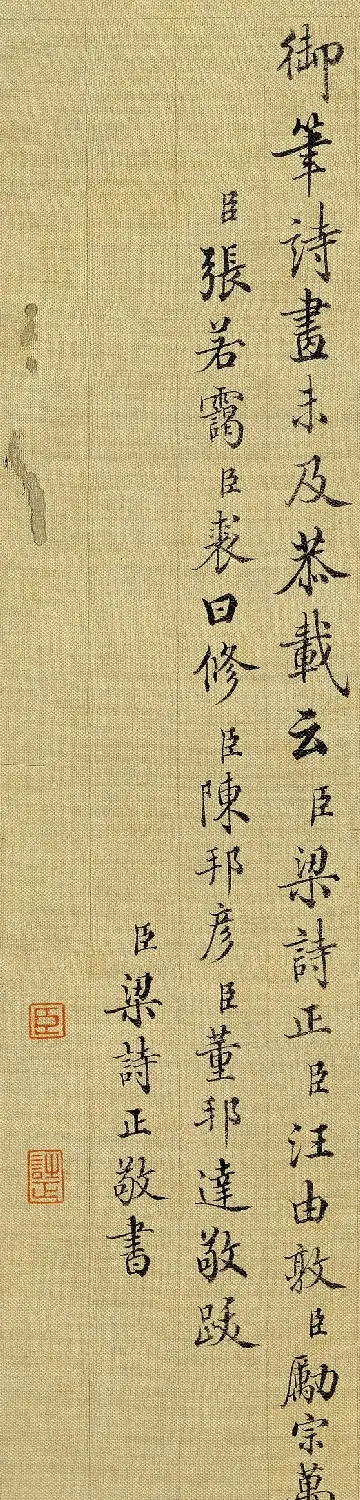 御筆詩畫未及恭載云臣梁詩正臣汪由敦臣勵宗萬
臣張若靄臣裘曰修臣陳邦彥臣董邦達敬跋
臣梁詩正敬書
臣
詩正